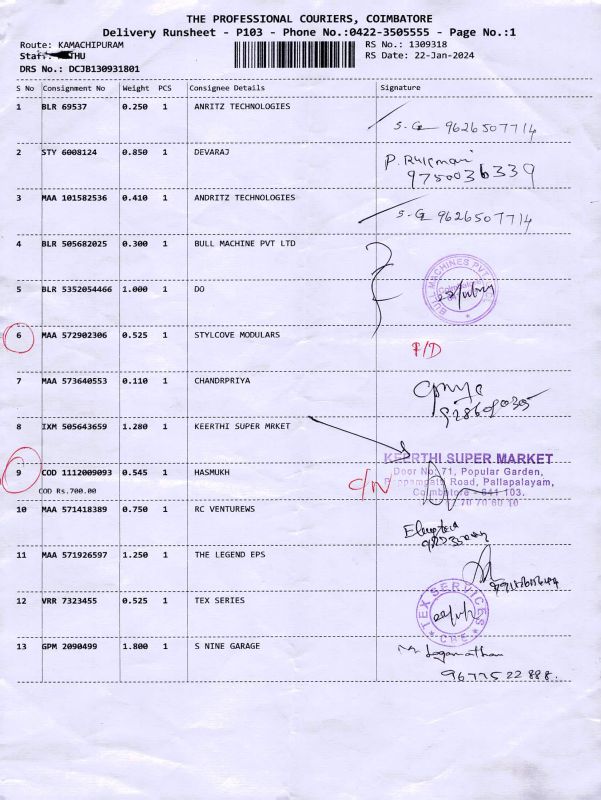 THE PROFESSIONAL COURIERS, COIMBATORE
Delivery Runsheet - P103 - Phone No.:0422-3505555 - Page No.:1
Route: KAMACHIPURAM RS No.: 1309318
RS Date: 22-Jan-2024
DRS No.: DCJB130931801
S No Consignment No Weight PCS Consignee Details Signature
1 BLR 69537 0.250 1 ANRITZ TECHNOLOGIES
S. G 9626507714
2 STY 6008124 0.850 1 DEVARAJ
9750036339
3 MAA 101582536 0.410 1 ANDRITZ TECHNOLOGIES
S. G 9626507714
4 BLR 505682025 0.300 1 BULL MACHINE PVT LTD
BULL MACHINES PVT
5 BLR 5352054466 1.000 1 DO
6 MAA 572902306 0.525 1 STYLCOVE MODULARS
F/D
7 MAA 573640553 0.110 1 CHANDRPRIYA
8 IXM 505643659 1.280 1 KEERTHI SUPER MRKET
KEERTHI SUPER MARKET
9 COD 1112009093 0.545 1 HASMUKH
C/N
Door No. 71, Popular Garden,
Road, Pallapalayam,
Coimbatore - 641 103.
COD Rs.700.00
10 MAA 571418389 0.750 1 RC VENTUREWS
11 MAA 571926597 1.250 1 THE LEGEND EPS
12 VRR 7323455 0.525 1 TEX SERIES
TEX SERVICES
CBE
13 GPM 2090499 1.800 1 S NINE GARAGE
Loganathan
9677522888.